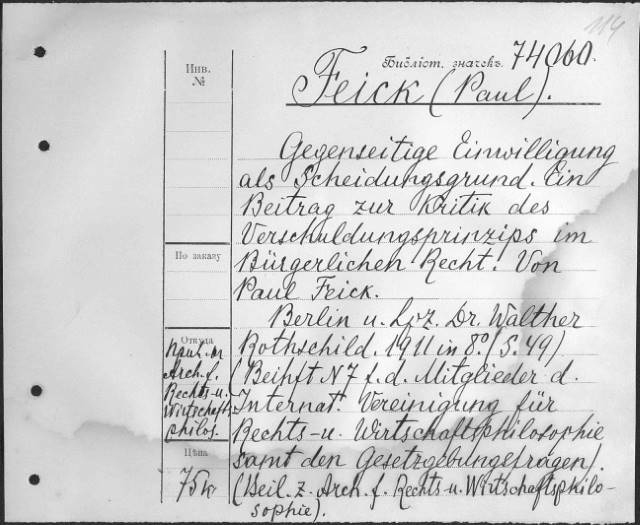 114
Библіот. значекъ 74060.
Инв.
№
Feick (Paul).
Gegenseitige Einwilligung
als Scheidungsgrund. Ein
Beitrag zur Kritik des
Verschuldungsprinzips im
По заказу
Bürgerlichen Recht. Von
Paul Feick.
Berlin u. Lpz. Dr. Walther
Откуда
Rothschild. 1911 in 8º. (S. 49)
Arch. f.
Rechts- u.
Wirtschafts-
philos.
(Beihft N 7 f. d. Mitglieder d.
Internat. Vereinigung für
Rechts- u. Wirtschaftsphilosophie
samt den Gesetzgebungsfragen).
Цѣна
75
(Beil. z. Arch. f. Rechts u. Wirtschaftsphilo-
sophie).